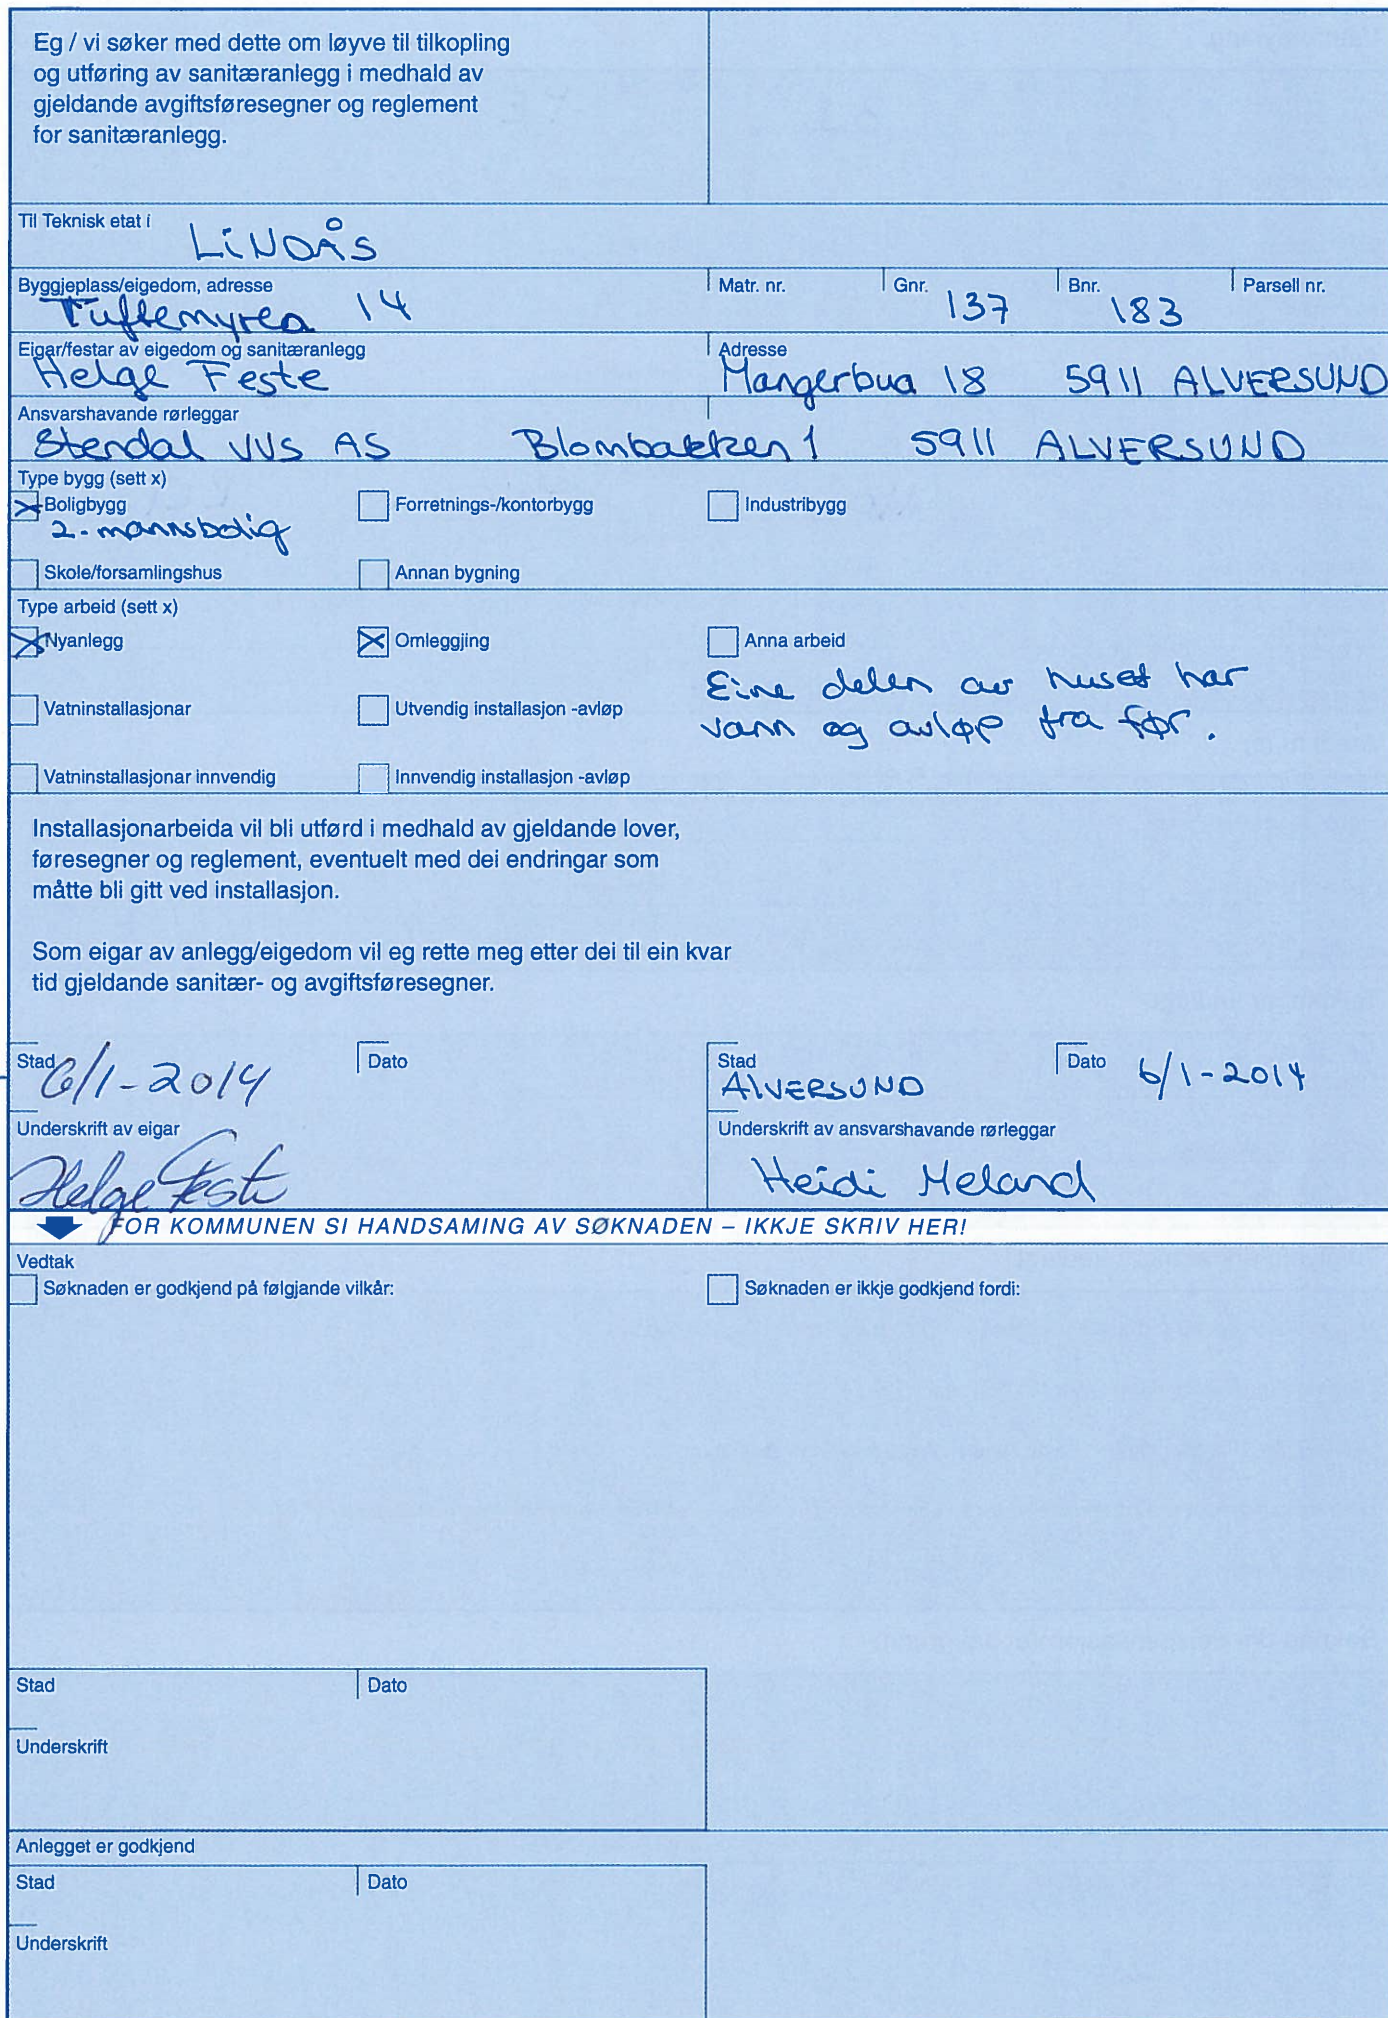 Eg / vi søker med dette om løyve til tilkopling
og utføring av sanitæranlegg i medhald av
gjeldande avgiftsføresegner og reglement
for sanitæranlegg.
Til Teknisk etat i
LINDÅS
Byggjeplass/eigedom, adresse Matr. nr. Gnr. Bnr. Parsell nr.
Tuftemyrea 14 137 183
Eigar/festar av eigedom og sanitæranlegg Adresse
Helge Feste Mangerbua 18 5911 ALVERSUND
Ansvarshavande rørleggar
Stendal VVS AS Blombakken 1 5911 ALVERSUND
Type bygg (sett x)
Boligbygg Forretnings-/kontorbygg Industribygg
2-mannsbolig
Skole/forsamlingshus Annan bygning
Type arbeid (sett x)
Nyanlegg Omleggjing Anna arbeid
Eine delen av huset har
Vatninstallasjonar Utvendig installasjon -avløp
vann og avløp fra før.
Vatninstallasjonar innvendig Innvendig installasjon -avløp
Installasjonarbeida vil bli utførd i medhald av gjeldande lover,
føresegner og reglement, eventuelt med dei endringar som
måtte bli gitt ved installasjon.
Som eigar av anlegg/eigedom vil eg rette meg etter dei til ein kvar
tid gjeldande sanitær- og avgiftsføresegner.
Stad Dato Stad Dato
6/1-2014 ALVERSUND 6/1-2014
Underskrift av eigar Underskrift av ansvarshavande rørleggar
Helge Feste Heidi Meland
FOR KOMMUNEN SI HANDSAMING AV SØKNADEN – IKKJE SKRIV HER!
Vedtak
Søknaden er godkjend på følgjande vilkår: Søknaden er ikkje godkjend fordi:
Stad Dato
Underskrift
Anlegget er godkjend
Stad Dato
Underskrift